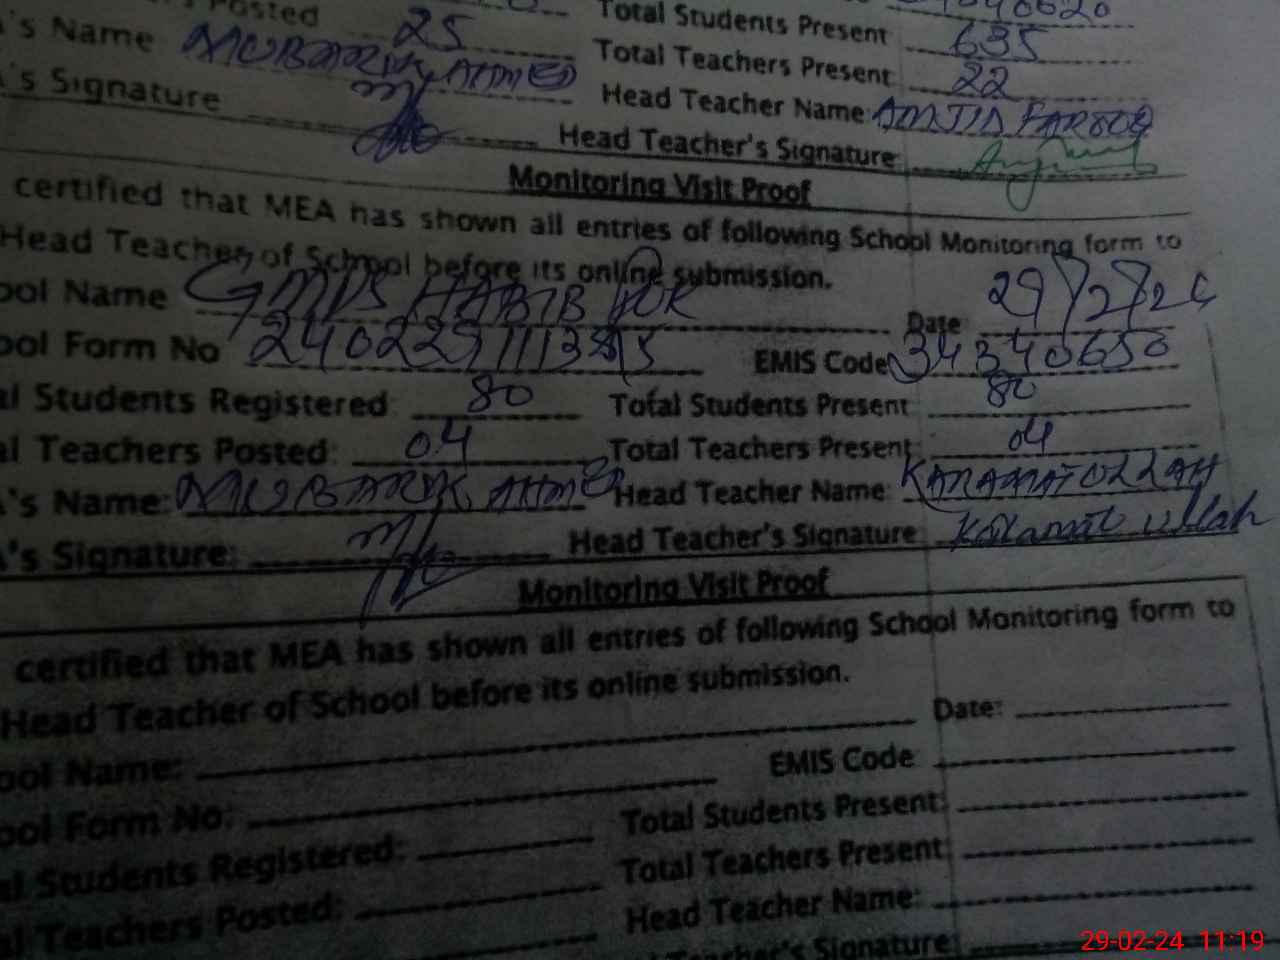 Posted 25 Total Students Present 635
's Name MUBARIK AHMED Total Teachers Present 22
's Signature Head Teacher Name: AMJID FAROOQ
Head Teacher's Signature:
Monitoring Visit Proof
certified that MEA has shown all entries of following School Monitoring form to
Head Teacher of School before its online submission.
ool Name GMPS HABIB PUR Date 29/2/24
ool Form No EMIS Code 34340650
al Students Registered: 80 Total Students Present 80
al Teachers Posted: 04 Total Teachers Present: 04
's Name: MUBARIK AHMED Head Teacher Name: KARAMATULLAH
's Signature: Head Teacher's Signature: Karamat ullah
Monitoring Visit Proof
certified that MEA has shown all entries of following School Monitoring form to
Head Teacher of School before its online submission.
ool Name: Date:
ool Form No: EMIS Code
al Students Registered: Total Students Present:
al Teachers Posted: Total Teachers Present:
Head Teacher Name:
Teacher's Signature:
29-02-24 11:19